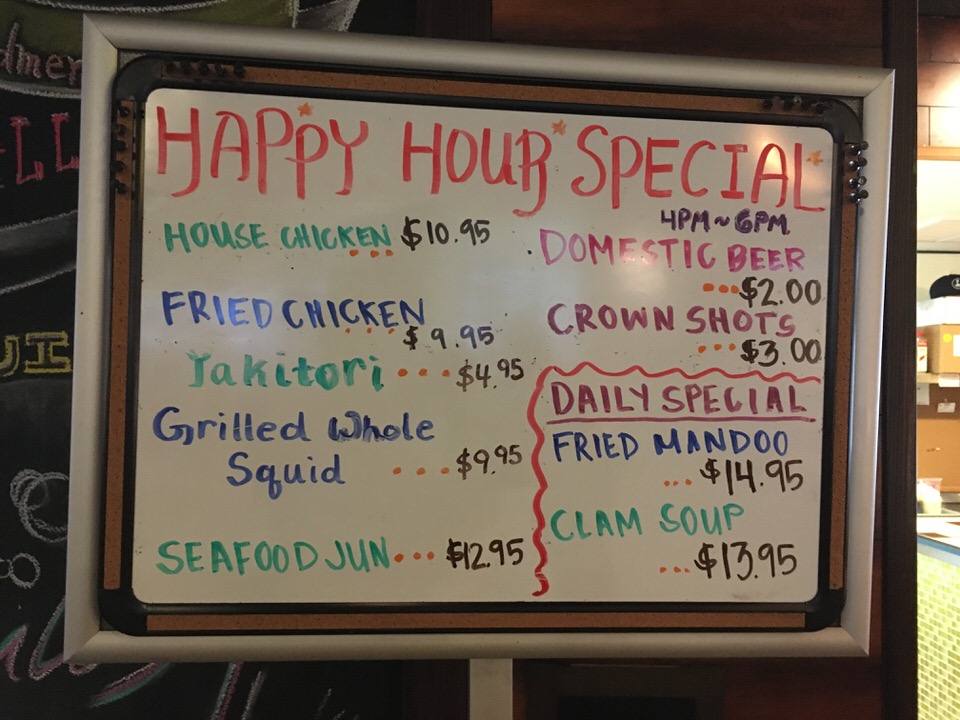 HAPPY HOUR SPECIAL
4PM~6PM
HOUSE CHICKEN $10.95
FRIED CHICKEN
$9.95
Yakitori ... $4.95
Grilled Whole
Squid .... $9.95
SEAFOOD JUN... $12.95
DOMESTIC BEER
...$2.00
CROWN SHOTS
...$3.00
DAILY SPECIAL
FRIED MANDOO
...$14.95
CLAM SOUP
...$13.95